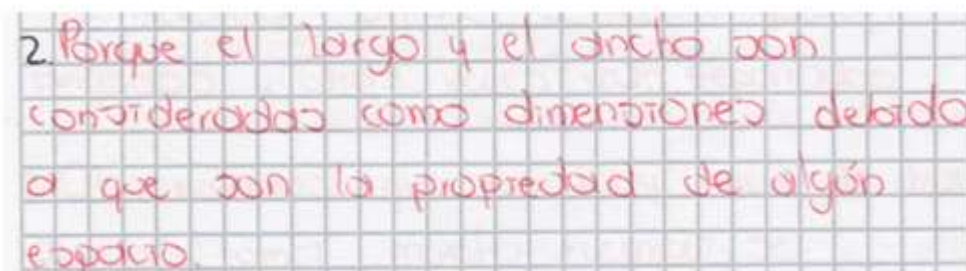 2. Porque el largo y el ancho son
consideradas como dimensiones debido
a que son la propiedad de algún
espacio.